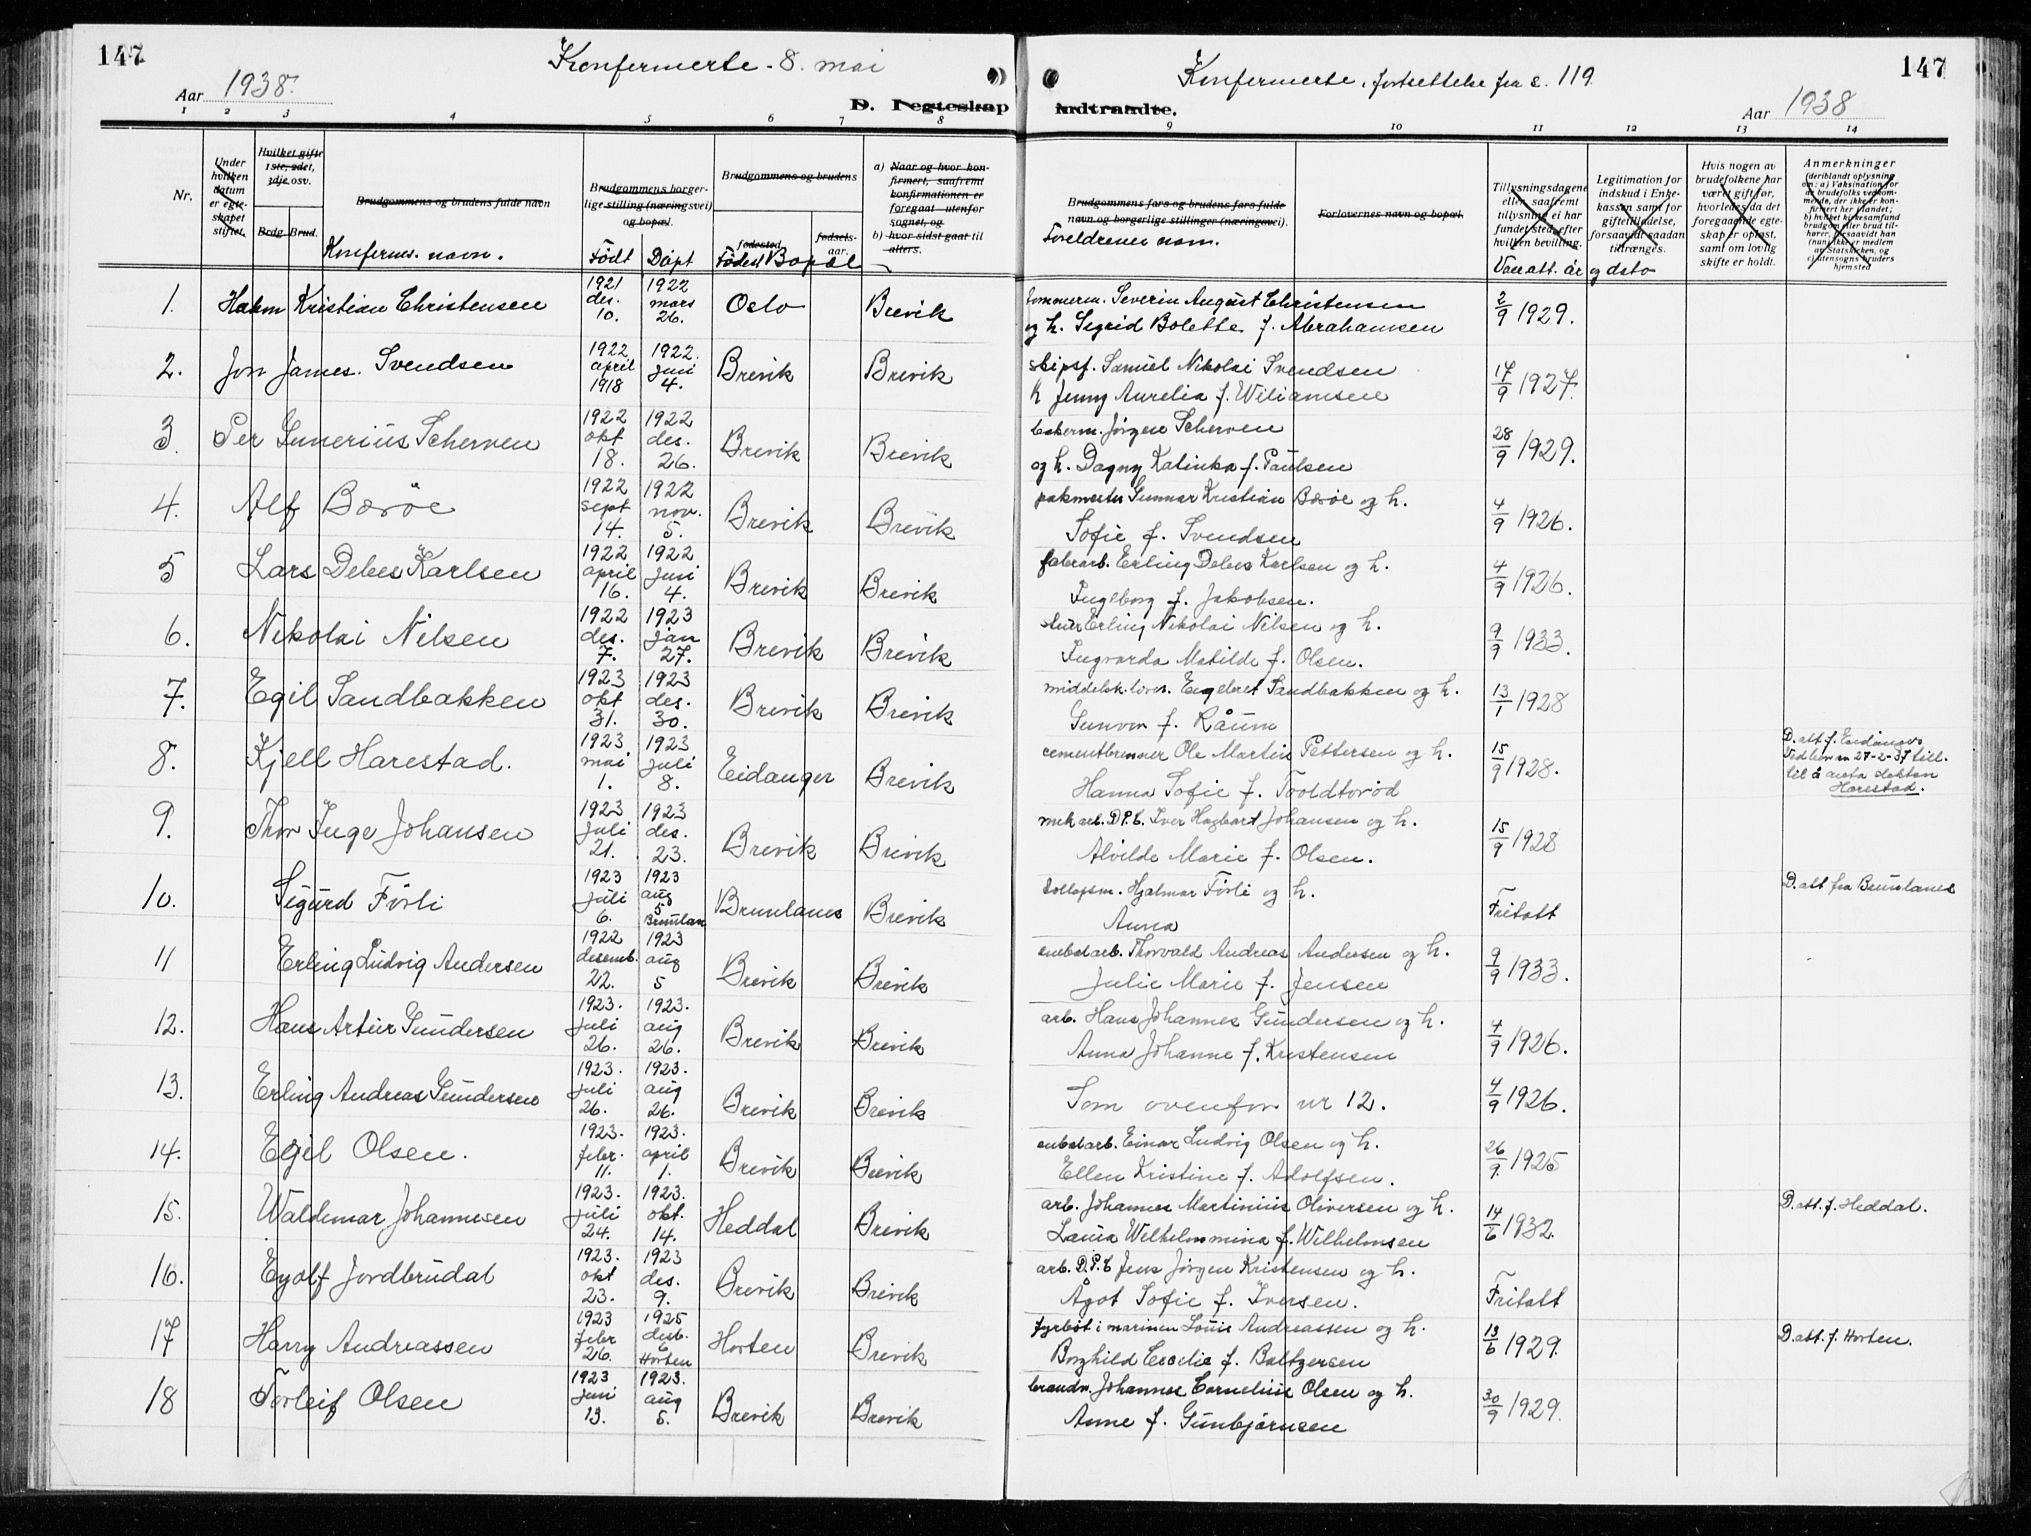 147
Konfermerte - 8. mai
Aar 1938.
D. Egteskap
Konfermerte, fortsettelse fra s. 119
indtraadte.
Aar 1938
147
1 2 3 4 5 6 7 8 9 10 11 12 13 14
Nr.
Under hvilken datum er egteskapet stiftet.
Hvilket gifte 1ste, 2det, 3dje osv.
Brdg. Brud.
Brudgommens og brudens fulde navn
Konfermns. navn.
Brudgommens borgerlige stilling (næringsvei) og bopæl
Født Døpt
Brudgommens og brudens
fødested fødselsaar.
Fødest Bopæl
a) Naar og hvor konfirmert, saafremt konfirmationen er foregaat utenfor sognet, og
b) hvor sidst gaat til alters.
Brudgommens fars og brudens fars fulde navn og borgerlige stillinger (næringsvei).
Foreldrenes navn.
Forlovernes navn og bopæl.
Tillysningsdagene eller saafremt tillysning ei har fundet sted, efter hvilken bevilling.
Vac. att. år og dato
Legitimation for indskud i Enkekassen samt for giftetilladelse, forsaavidt saadan tiltrænges.
Hvis nogen av brudefolkene har været gift før, hvorledes da det foregaaende egteskap er opløst, samt om lovlig skifte er holdt.
Anmerkninger
1. Hakon Kristian Christensen 1921 des. 10. 1922 mars 26. Oslo Brevik
Severin August Christensen
og h. Sigrid Bolette f. Abrahamsen 2/9 1929.
2. Jon James Svendsen 1922 april 1918 1922. juni 4. Brevik Brevik
skipsf. Samuel Nikolai Svendsen
h Jenny Aurelia f. Wiliamsen 17/9 1927.
3. Per Gunerius Scherven 1922 okt 18. 1922 des. 26. Brevik Brevik
bakerm. Jørgen Scherven
og h. Dagny Katinka f. Paulsen 28/9 1929.
4. Alf Barøe 1922 sept 14. 1922 nov. 5. Brevik Brevik
pakmester Gunnar Kristian Barøe og h.
Sofie f. Svendsen 4/9 1926.
5 Lars Debes Karlsen 1922 april 16. 1922 juni 4. Brevik Brevik
fabrarb. Erling Debes Karlsen og h.
Ingeborg f. Jakobsen. 4/9 1926.
6. Nikolai Nilsen 1922 des. 7. 1923 jan 27. Brevik Brevik
Erling Nikolai Nilsen og h.
Ingvarda Matilde f. Olsen. 9/9 1933.
7. Egil Sandbakken 1923 okt 31. 1923 des. 30. Brevik Brevik
middelsk. lærer. Engebret Sandbakken og h.
Gunvor f. Råum 13/1 1928
8. Kjell Harestad. 1923 mai 1. 1923 juli 8. Eidanger Brevik
cementbrenner Ole Martin Pettersen og h.
Hanna Sofie f. Tvoldtorød 15/9 1928.
D. att. f. Eidanger
Ved bev. av 27-2-37 till.
til å anta slektsn
Harestad.
9. Thor Inge Johansen 1923 juli 21. 1923 des. 23. Brevik Brevik
mek arb. D.P.C. Iver Hagbart Johansen og h.
Alvilde Marie f. Olsen. 15/9 1928
10. Sigurd Førli 1923 juli 6. 1923 aug 5 Brunlan Brunlanes Brevik
tollopsm. Hjalmar Førli og h.
Anna Fritatt
D. att fra Brunlanes
11 Erling Ludvig Andersen 1922 desemb. 22. 1923 aug 5 Brevik Brevik
Thorvald Andreas Andersen og h.
Julie Marie f. Jensen 9/9 1933.
12. Hans Artur Gundersen 1923. juli 26. 1923. aug 26. Brevik Brevik
arb. Hans Johannes Gundersen og h.
Anna Johanne f. Kristensen 4/9 1926.
13. Erling Andreas Gundersen 1923. juli 26. 1923. aug 26. Brevik Brevik
Som ovenfor nr 12. 4/9 1926.
14. Egil Olsen. 1923. febr. 11. 1923. april 1. Brevik Brevik
Einar Ludvig Olsen og h.
Ellen Kristine f. Adolfsen. 26/9. 1925
15. Waldemar Johannesen 1923. juli 24. 1923. okt. 14. Heddal Brevik
arb. Johannes Martinius Oliversen og h.
Laura Wilhelmmina f. Wilhelmsen 14/6 1932.
D. att. f. Heddal.
16. Eyolf Jordbrudal 1923. okt 23. 1923 des. 9. Brevik Brevik
arb. D.P.C Jens Jørgen Kristensen og h.
Ågot Sofie f. Iversen. Fritatt
17 Harry Andreassen 1923 febr 26. 1925 desb. 6 Horten Horten Brevik
fyrbøt i marinen Louis Andreassen og h.
Borghild Cecelie f. Baltzersen 13/6 1929.
D. att. f. Horten.
18 Torleif Olsen 1923 juni 13. 1923. aug 5. Brevik Brevik
Johannes Cornelius Olsen og h.
Anne f. Gunbjørnsen 30/9 1929.